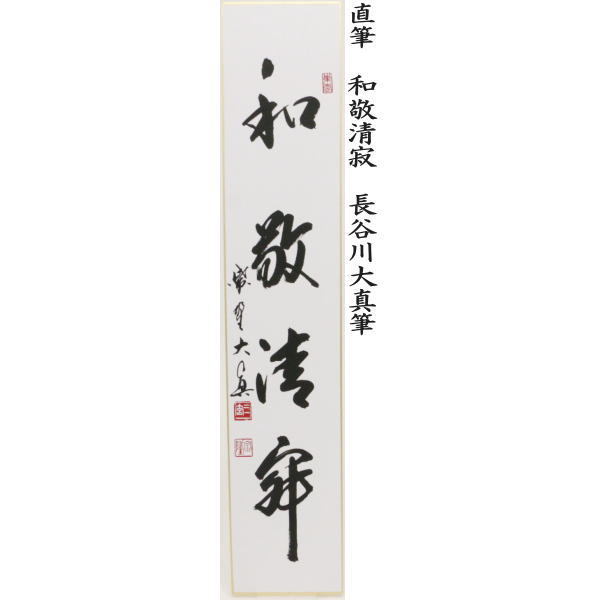 直筆 和敬清寂 長谷川大真筆
和敬清寂
紫野大真